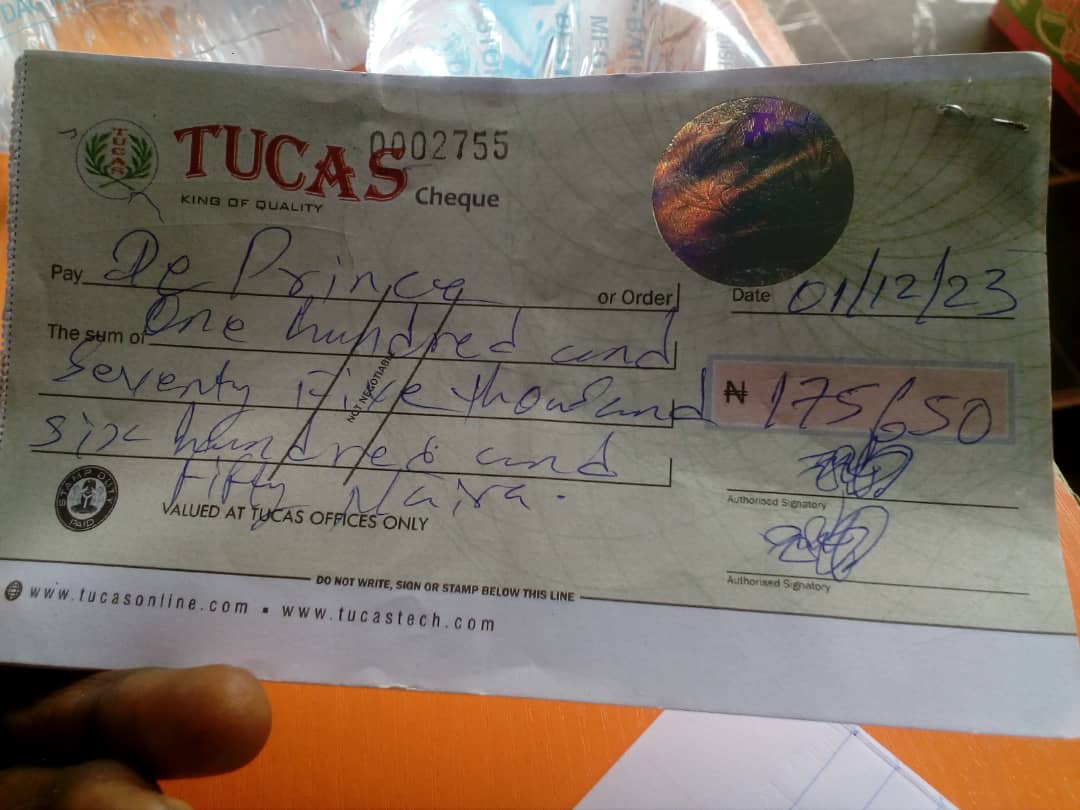 TUCAS
0002755
KING OF QUALITY
Cheque
Pay De Prince or Order
Date 01/12/23
The sum of One hundred and
Seventy Five thousand
₦ 175650
six hundred and
Fifty Naira.
NOT NEGOTIABLE
Authorised Signatory
STAMP DUTY
PAID
VALUED AT TUCAS OFFICES ONLY
Authorised Signatory
DO NOT WRITE, SIGN OR STAMP BELOW THIS LINE
www.tucasonline.com ▪ www.tucastech.com